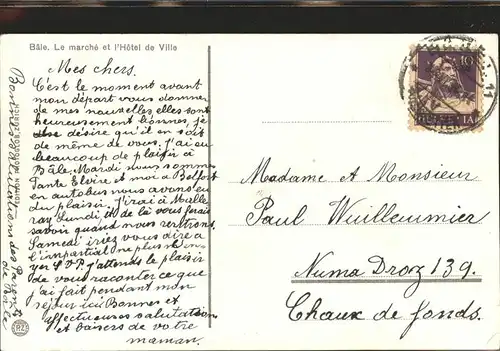 Bâle. Le marché et l'Hôtel de Ville
Mes chers.
C'est le moment avant
mon départ vous donner
de mes nouvelles elles sont
heureusement bonnes, je
désire qu'il en soit
de même de vous. J'ai eu
beaucoup de plaisir à
Bâle. Mardi nous sommes
Tante Elvire et moi à Belfort
en autobus nous avons eu
du plaisir. J'irai à Malle
ray Lundi, et de là vous ferai
savoir quand nous rentrons.
Samedi iriez vous dire à
l'impartial ne plus l'en
yer S.V.P. j'attends le plaisir
de vous raconter ce que
j'ai fait pendant mon
séjour ici Bonnes et
affectueuses salutations
et baisers de votre
maman.
Bonnes salutations des Parents
de Bâle
10
HELVETIA
11
Madame et Monsieur
Paul Wuilleumier
Numa Droz 139.
Chaux de fonds.